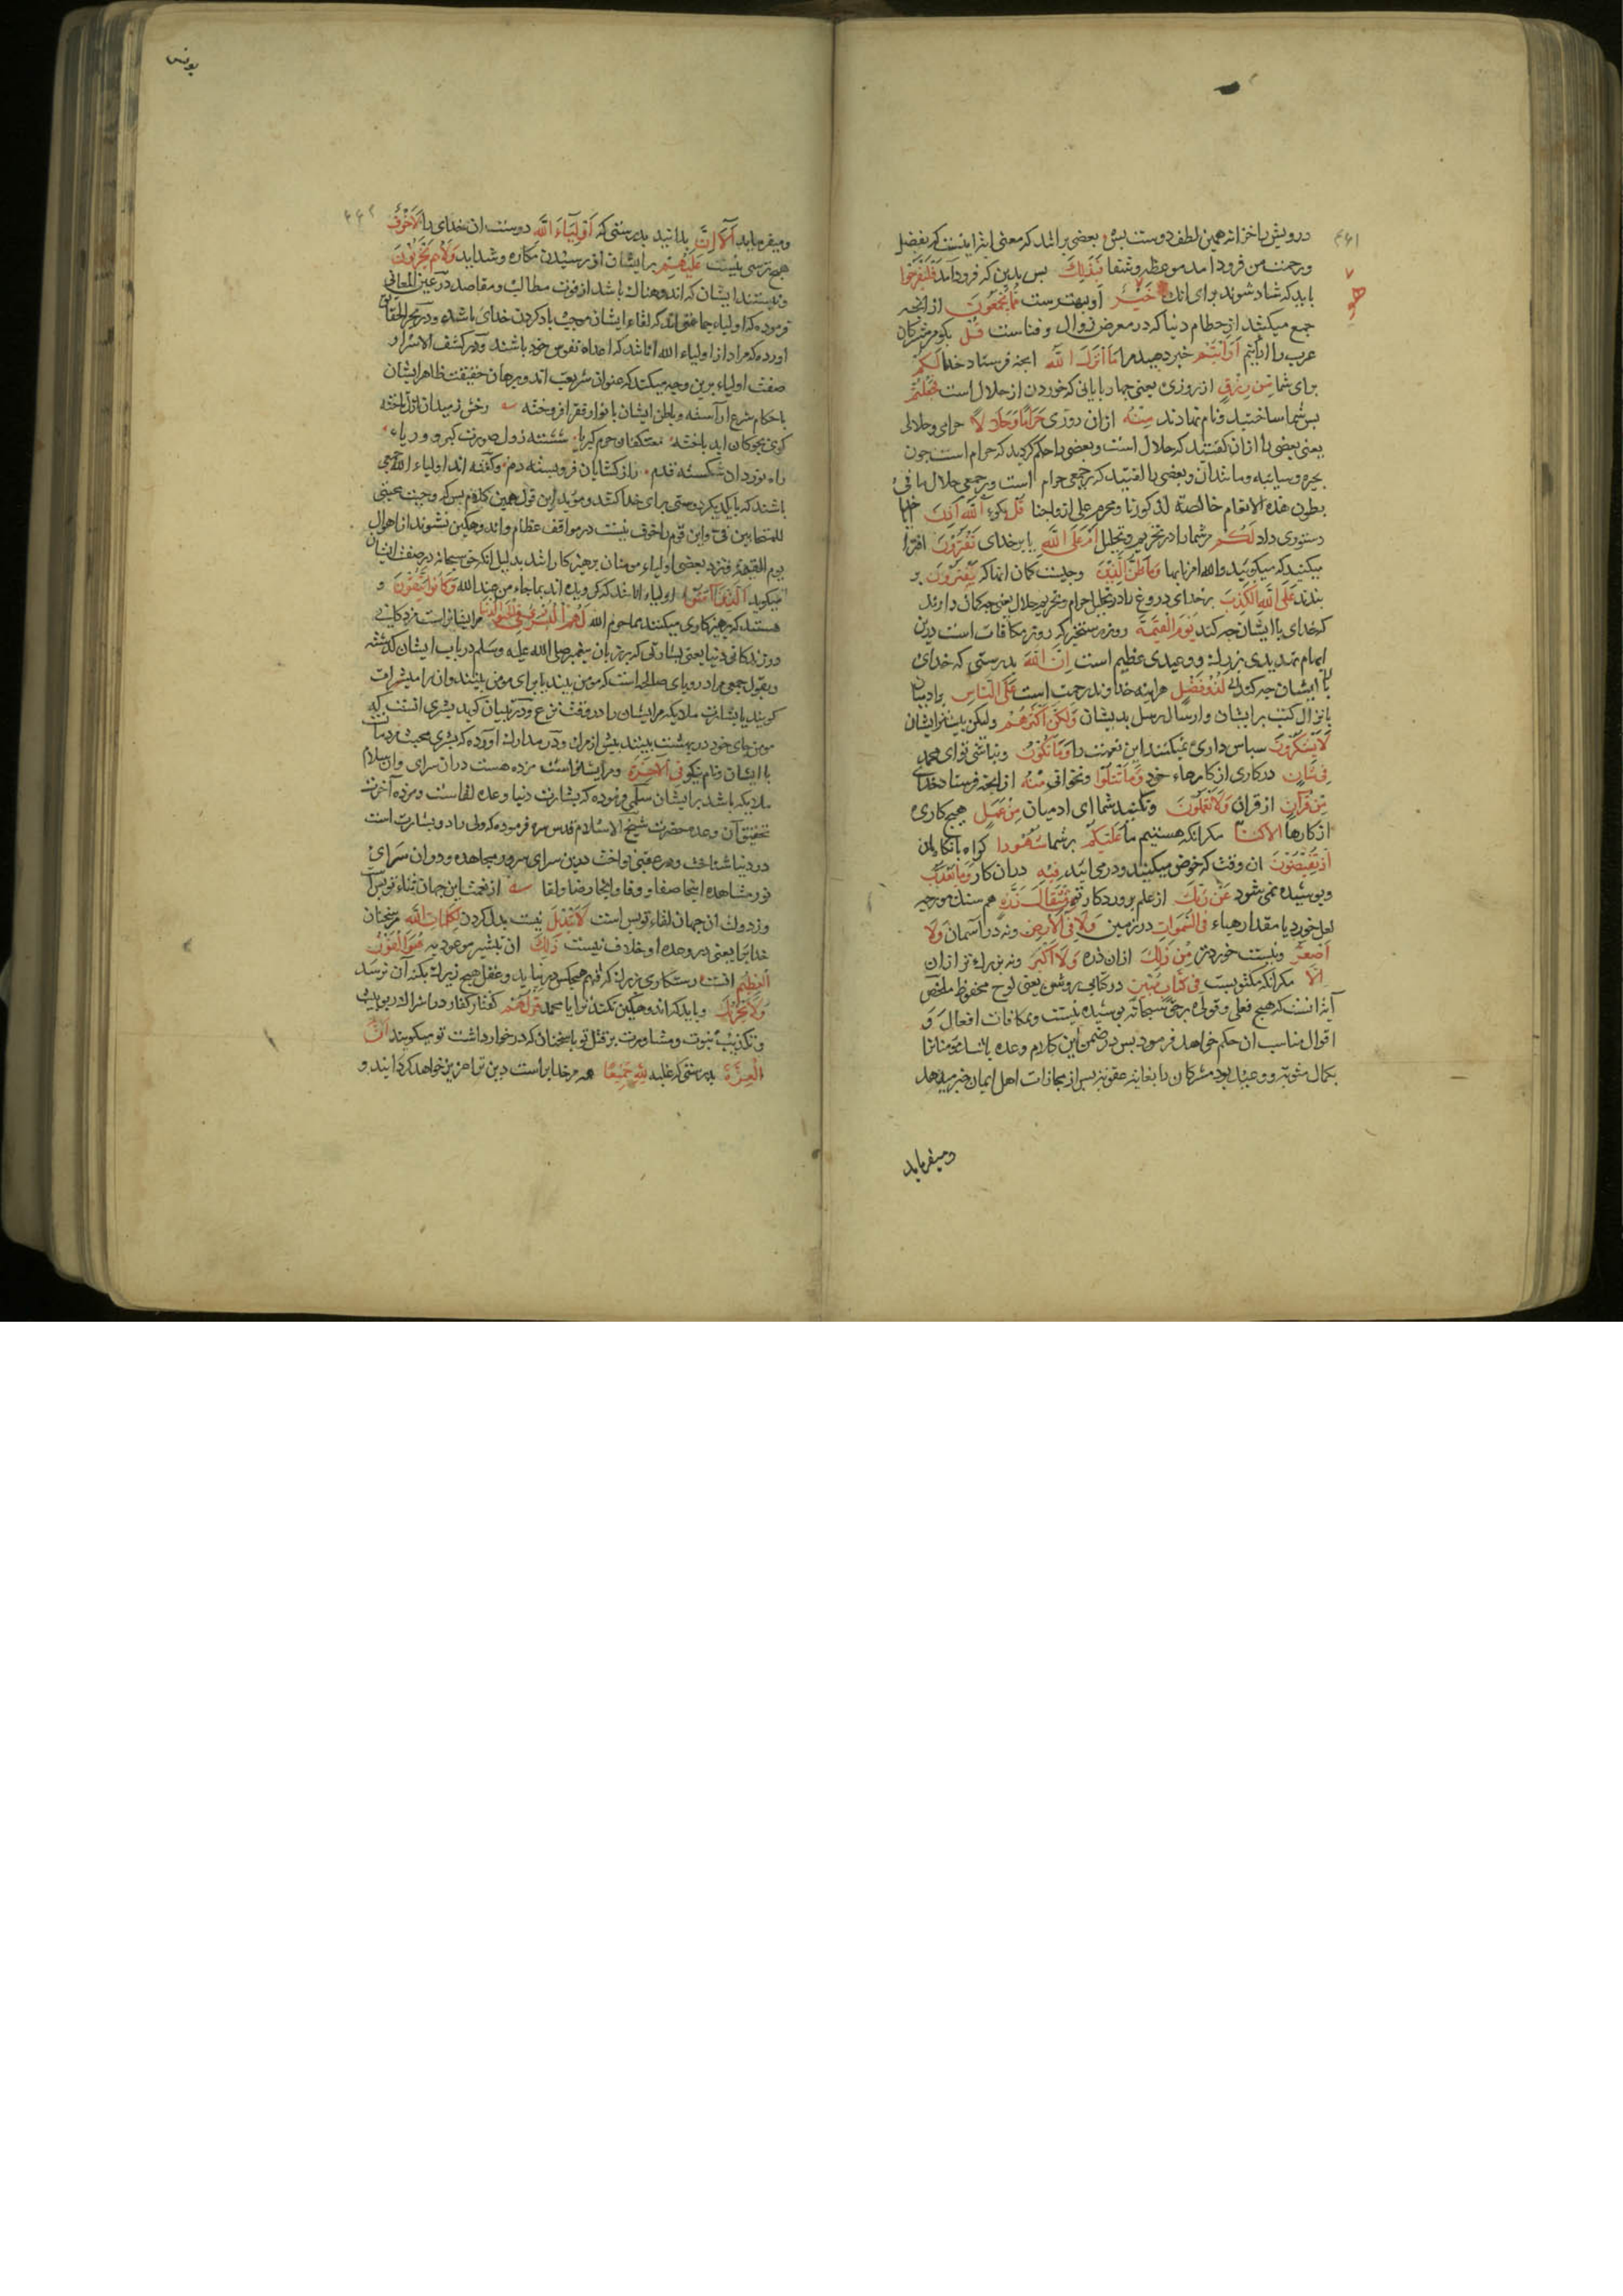 ۴۶۱
درویش را خزانه همین لطف دوست بس بعضی برانند که معنی آیه اینست که بفضل
و رحمت من فرود آمد موعظه و شفا فَبِذٰلِكَ بس بدین که فرود آمد فَلْيَفْرَحُوا
باید که شاد شوند برای آنك هُوَ خَيْرٌ او بهترست مِمَّا يَجْمَعُونَ از انچه
جمع میکنند از حطام دنیا که در معرض زوال و فناست قُلْ بکو مشرکان
عرب را اَرَاَيْتُمْ خبر دهید مرا مَا اَنْزَلَ اللّٰهُ انچه فرستاد خدا لَكُمْ
برای شما مِنْ رِزْقٍ از روزی یعنی چهار پایانی که خوردن از حلال است فَجَعَلْتُمْ
بس شما ساختید و نام نهادند مِنْهُ ازان روزی حَرَامًا وَحَلَالًا حرامی و حلالی
یعنی بعضی را ازان کفتند که حلال است و بعضی را حکم کردید که حرام است چون
بحیره و سایبه و مانندان و بعضی را کفتید که بر جمعی حرام است و بر جمعی حلال ما فی
بطون هذه الانعام خالصة لذکورنا و محرم علی ازواجنا قُلْ بکو آللّٰهُ اَذِنَ خدا
دستوری داد لَكُمْ مر شما را در تحریم و تحلیل اَمْ عَلَى اللّٰهِ یا بر خدای تَفْتَرُونَ افترا
میکنید که میکویید والله امرنا بها وَمَا ظَنُّ الَّذِينَ و چیست کمان انها که يَفْتَرُونَ بر
بندند عَلَى اللّٰهِ الْكَذِبَ بر خدای دروغ را در تحلیل حرام و تحریم حلال یعنی چه کمان دارند
که خدای با ایشان چه کند يَوْمَ الْقِيٰمَةِ روز رستخیز که روز مکافات است درین
ابهام تهدیدی بزرك و وعیدی عظیم است اِنَّ اللّٰهَ بدرستی که خدای
با ایشان چه کند لَذُو فَضْلٍ هراینه خداوند رحمت است عَلَى النَّاسِ بر ادمیان
بانزال کتب بر ایشان و ارسال رسل بدیشان وَلٰكِنَّ اَكْثَرَهُمْ ولیکن بیشتر ایشان
لَا يَشْكُرُونَ سباس داری نمیکنند این نعمت را وَمَا تَكُونُ و نباشی تو ای محمد
فِي شَاْنٍ در کاری از کارهاء خود وَمَا تَتْلُوا و نخوانی مِنْهُ از انچه فرستاد خدای
مِنْ قُرْآنٍ از قران وَلَا تَعْمَلُونَ و نکنید شما ای ادمیان مِنْ عَمَلٍ هیچ کاری
از کارها اِلَّا كُنَّا مکر انکه هستیم ما عَلَيْكُمْ بر شما شُهُودًا کواه بانکاهان
اِذْ تُفِيضُونَ ان وقت که خوض میکنید و در می ائید فِيهِ دران کار وَمَا يَعْزُبُ
و پوشیده نمی شود عَنْ رَبِّكَ از علم پروردکار تو مِنْ مِثْقَالِ ذَرَّةٍ هم سنك مورچه
لعل خورد یا مقدار هباء فِي السَّمٰوَاتِ در زمین وَلَا فِي الْاَرْضِ و نه در اسمان وَلَا
اَصْغَرَ و نیست خوردتر مِنْ ذٰلِكَ ازان ذره وَلَا اَكْبَرَ و نه بزرك تر ازان
اِلَّا مکر انکه مکتوبست فِي كِتَابٍ مُبِينٍ در کتابی روشن یعنی لوح محفوظ ملخص
آیه انست که هیچ فعلی و قولی بر حق سبحانه پوشیده نیست و مکافات افعال و
اقوال مناسب ان حکم خواهد فرمود بس در ضمن این کلام وعده باشد مومنانرا
بکمال مثوبه و وعید بود مشرکان را بغایة عقوبة بس از مجازات اهل ایمان خبر میدهد
ومیفرماید
یونس
۴۶۲
ومیفرماید اَلَا اِنَّ بدانید بدرستی که اَوْلِيَاءَ اللّٰهِ دوستان خدای را لَا خَوْفٌ
هیچ ترسی نیست عَلَيْهِمْ بر ایشان از رسیدن مکاره و شداید وَلَا هُمْ يَحْزَنُونَ
و نیستند ایشان که اندوهناك باشد از فوت مطالب و مقاصد در عین المعانی
فرموده که اولیاء جماعتی اند که لقاء ایشان موجب یاد کردن خدای باشد و در بحر الحقایق
اورده که مراد از اولیاء الله انا نند که اعداء نفوس خود باشند و در کشف الاسرار
صفت اولیاء برین وجه میکند که عنوان شریعت اند و برهان حقیقت ظاهر ایشان
باحکام شرع آراسته و باطن ایشان بانوار فقر افروخته رخش ز میدان ازل تاخته
کوی بچوکان ابد باخته معتکفان حرم کبریا شسته ز دل صورت کبر و ریاء
راه نوردان شکسته قدم راز کشایان فرو بسته دم و کفته اند اولیاء الله جمعی
باشند که با یکدیکر دوستی برای خدا کنند و موید این قول همین کلام بس که وجبت محبتی
للمتحابین فیّ و این قوم را خوف نیست در مواقف عظام و اندوهکین نشوند از اهوال
یوم القیمة و نزد بعضی اولیاء مومنان پرهیز کارانند بدلیل انکه حق سبحانه در صفت ایشان
میکوید اَلَّذِينَ آمَنُوا اولیاء انا نند که کرویده اند بما جاء من عند الله وَكَانُوا يَتَّقُونَ و
هستند که پرهیز کاری میکنند بما حرم الله لَهُمُ الْبُشْرٰى فِي الْحَيٰوةِ الدُّنْيَا مر ایشانراست مژدکانی
در زندکانی دنیا یعنی بشارتی که بر زبان پیغمبر صلی الله علیه وسلم در باب ایشان کذشته
و بقول جمعی مراد رویای صالحه است که مومن بیند یا برای مومن بینند و ان را مبشرات
کویند یا بشارت ملایکه مر ایشان را در وقت نزع و در تبیان کوید بشری انست که
مومن جای خود در بهشت بیند پیش از مرك و در مدارك اورده که بشری محبت مردمان
با ایشان و نام نیکو فِي الْآخِرَةِ و مر ایشانراست مژده هست دران سرای و ان سلام
ملایکه باشد بر ایشان سلمی فرموده که بشارت دنیا وعده لقاست و مژده آخرت
تحقیق آن وعده حضرت شیخ الاسلام قدس سره فرموده که ولی را دو بشارت است
در دنیا شناخت و در عقبی نواخت درین سرای سرور مجاهده و دران سرای
نور مشاهده اینجا صفا و وفا و انجا رضا و لقا از نعمت این جهان ثناء تو بس است
وز دولت ان جهان لقاء تو بس است لَا تَبْدِيلَ نیست بدل کردن لِكَلِمَاتِ اللّٰهِ مر سخنان
خدایرا یعنی در وعده او خلاف نیست ذٰلِكَ ان تبشیر موعود به هُوَ الْفَوْزُ
الْعَظِيمُ انست رستکاری بزرك که فهم هیچکس در نیابد و عقل هیچ زیرك بکنه آن نرسد
وَلَا يَحْزُنْكَ و باید که اندوهکین نکند ترا یا محمد قَوْلُهُمْ کفتار کفار در اشراك ربوبیت
و تکذیب نبوت و مشاورت بر قتل تو یا سخنان که در خوارداشت تو میکویند اِنَّ
الْعِزَّةَ بدرستی که غلبه لِلّٰهِ جَمِيعًا همه مر خدایراست دین ترا عزیز خواهد کردانید و